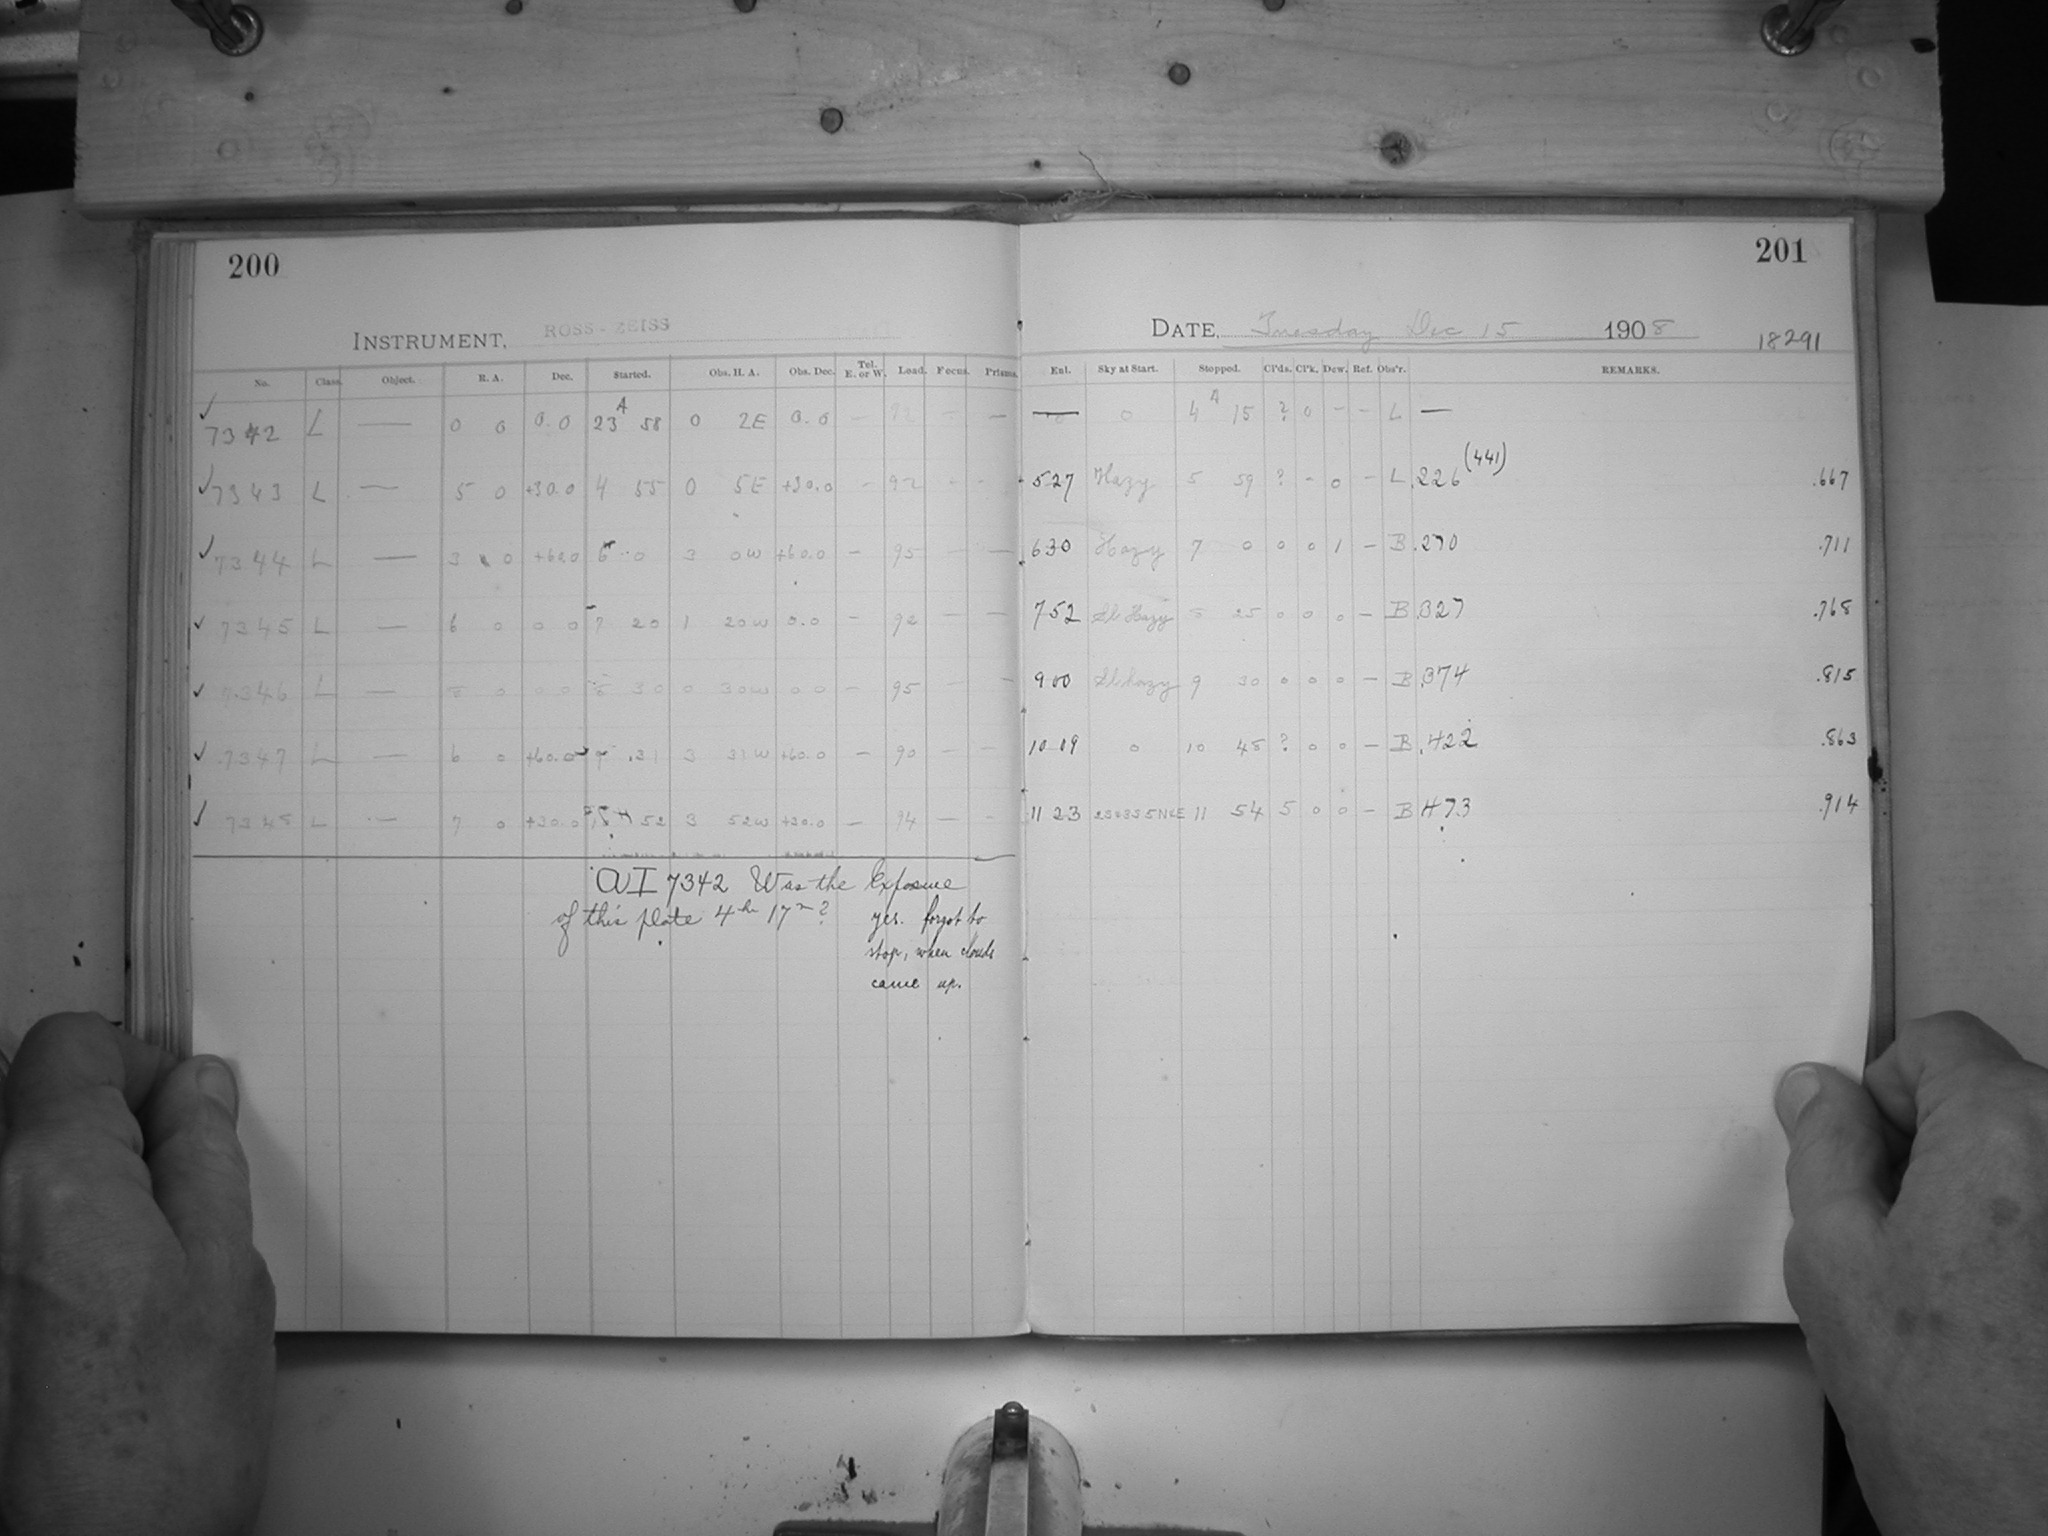 200
INSTRUMENT, ROSS-ZEISS
No. Class. Object. R. A. Dec. Started. Obs. H. A. Obs. Dec. Tel. E. or W. Load. Focus. Prisms.
✓ 7342 L — 0 0 0.0 23 58 0 2E 0.0 — 92 — —
✓ 7343 L — 5 0 +30.0 4 55 0 5E +30.0 — 92 - -
✓ 7344 L — 3 0 +60.0 6 0 3 0W +60.0 — 95 — —
✓ 7345 L — 6 0 0 0 7 20 1 20W 0.0 — 92 — —
✓ 7346 L — 8 0 0 0 8 30 0 30W 0 0 — 95 — —
✓ 7347 L — 6 0 +60.0 9 31 3 31W +60.0 — 90 — —
✓ 7348 L — 7 0 +30.0 52 3 52W +30.0 — 94 — -
7342 Was the Exposure
of this plate 4 hr 17 m?
yes. forgot to
stop, when clouds
came up.
201
DATE, Tuesday Dec 15 1908
18291
Enl. Sky at Start. Stopped. Cl'ds. Cl'k. Dew. Ref. Obs'r. REMARKS.
— 0 4 15 ? 0 - - L —
527 Hazy 5 59 ? - 0 - L .226 (441) .667
630 Hazy 7 0 0 0 1 - B .270 .711
752 Sl. Hazy 8 25 0 0 0 — B .327 .768
900 Sl hazy 9 30 0 0 0 — B .374 .815
10 09 0 10 48 ? 0 0 — B .422 .863
11 23 11 54 5 0 0 - B 473 .914